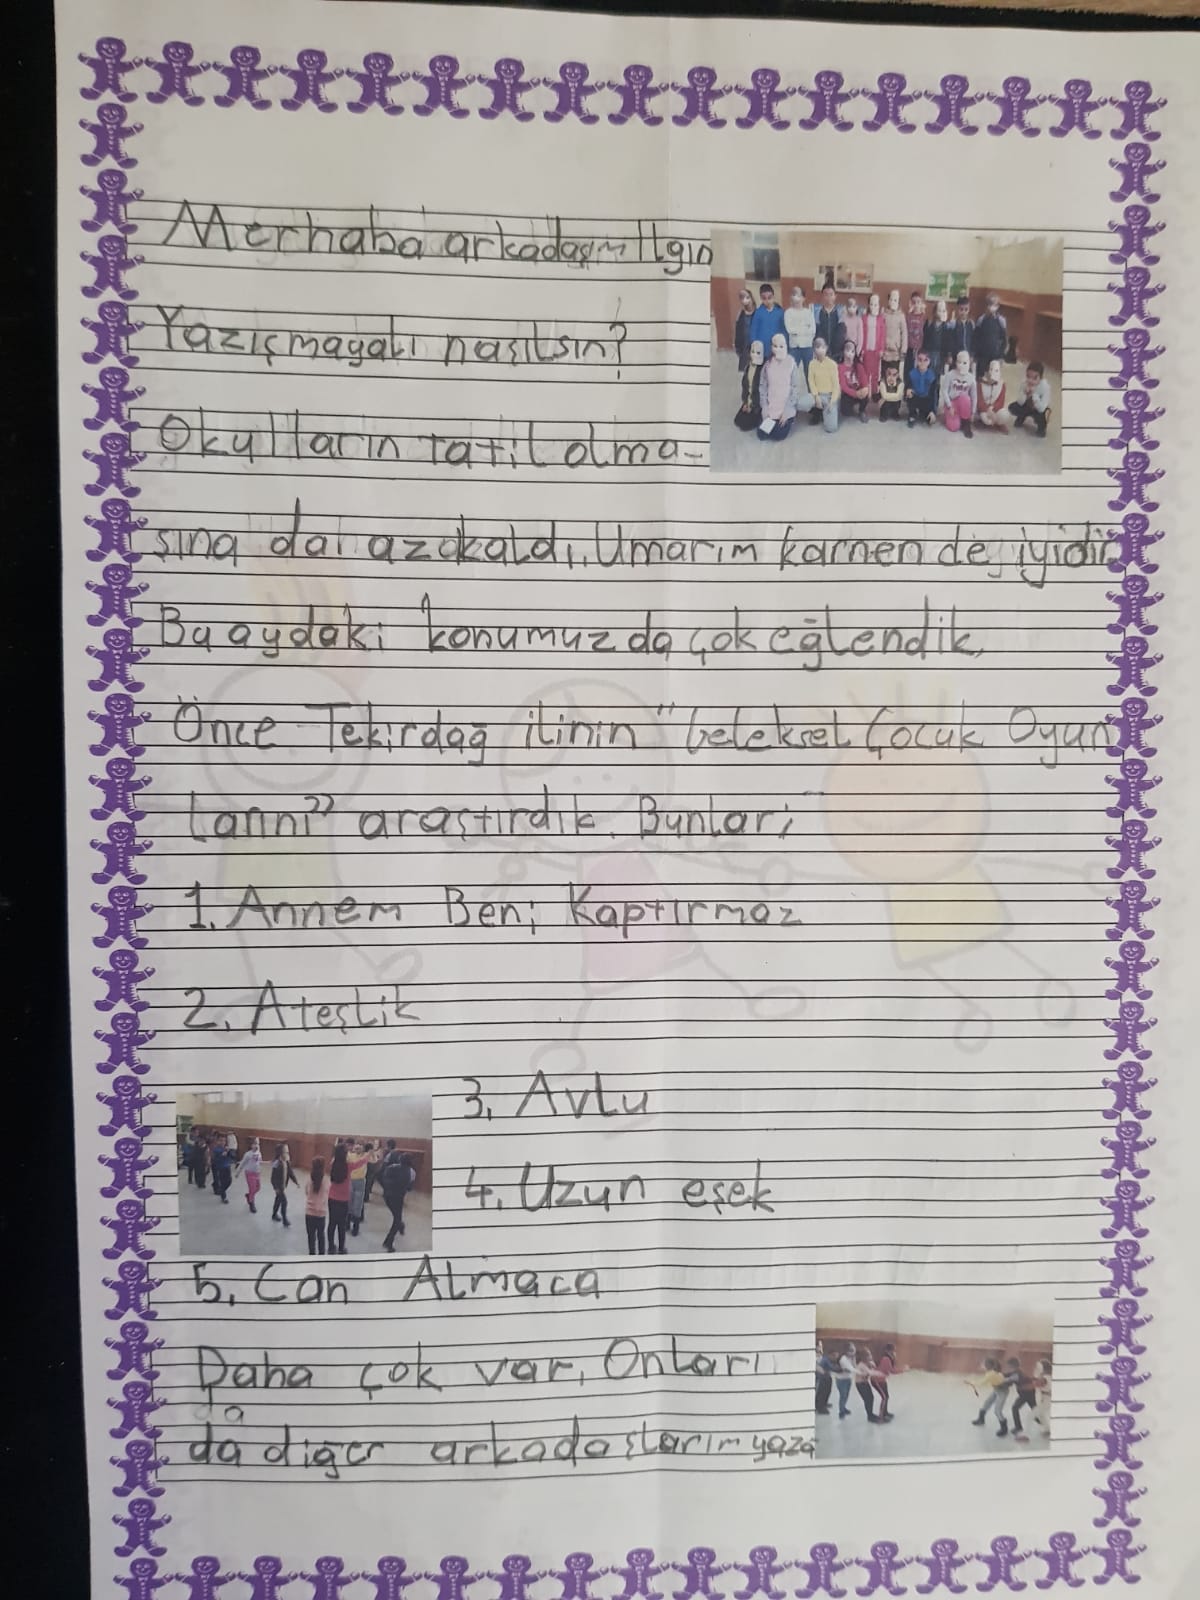 Merhaba arkadaşım Ilgın
Yazışmayalı nasılsın?
Okulların tatil olma-
sına da azokaldı. Umarım karnen de iyidir.
Bu aydaki konumuzda çok eğlendik.
Önce Tekirdağ ilinin "Geleksel Çocuk Oyun
larını" araştırdık. Bunlar;
1. Annem Beni Kaptırmaz
2. Ateşlik
3. Avlu
4. Uzun eşek
5. Can Almaca
Daha çok var. Onları
da diğer arkadaşlarım yaza